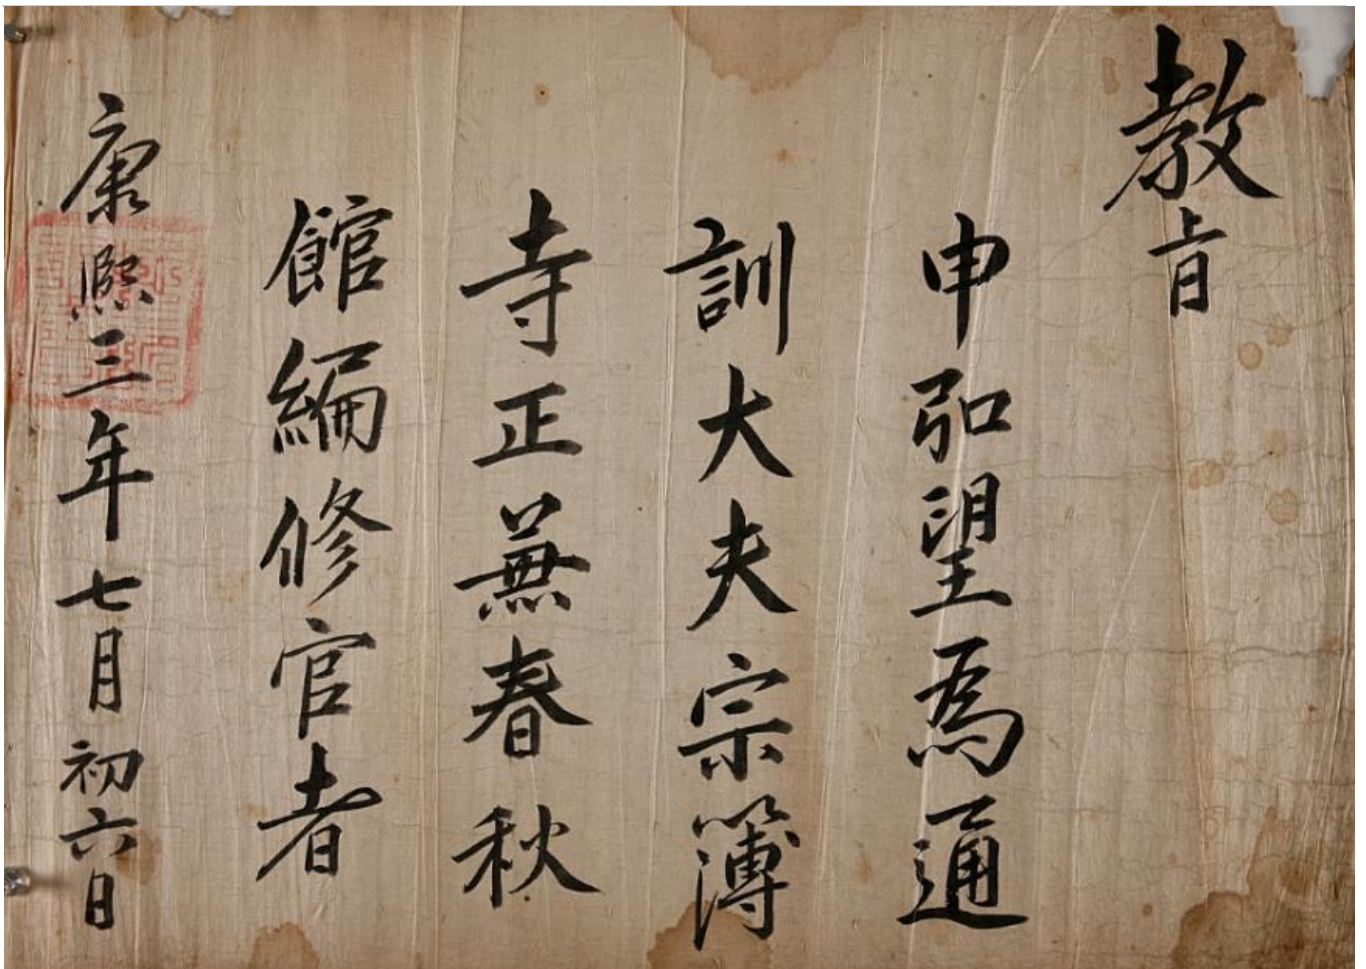 教旨
申弘望爲通
訓大夫宗簿
寺正兼春秋
館編修官者
康熙三年七月初六日